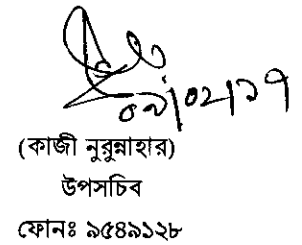 (কাজী নুরুন্নাহার)
উপসচিব
ফোনঃ ৯৫৪৯১২৮